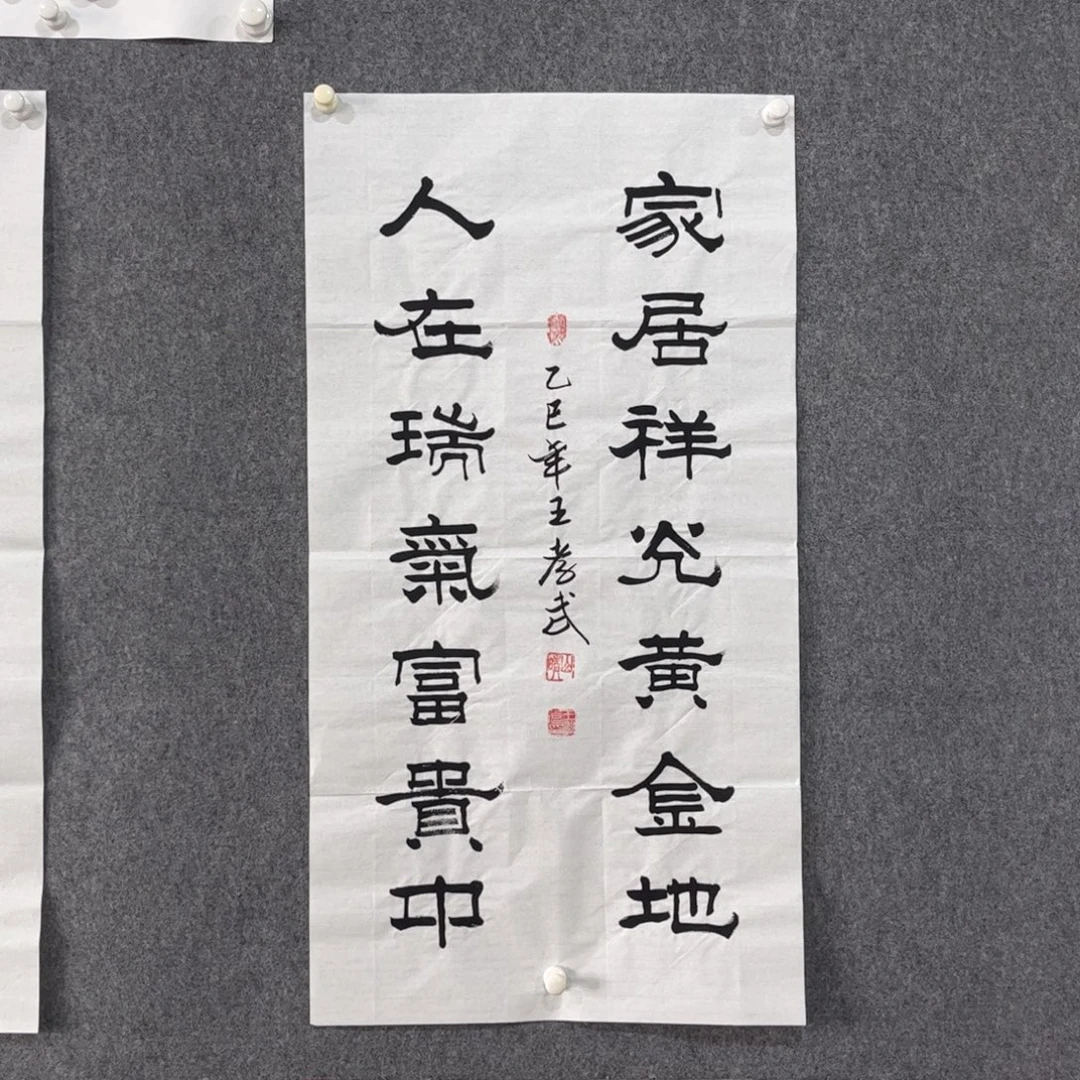 家居祥光黃金地
乙巳年王孝武
人在瑞氣富貴中